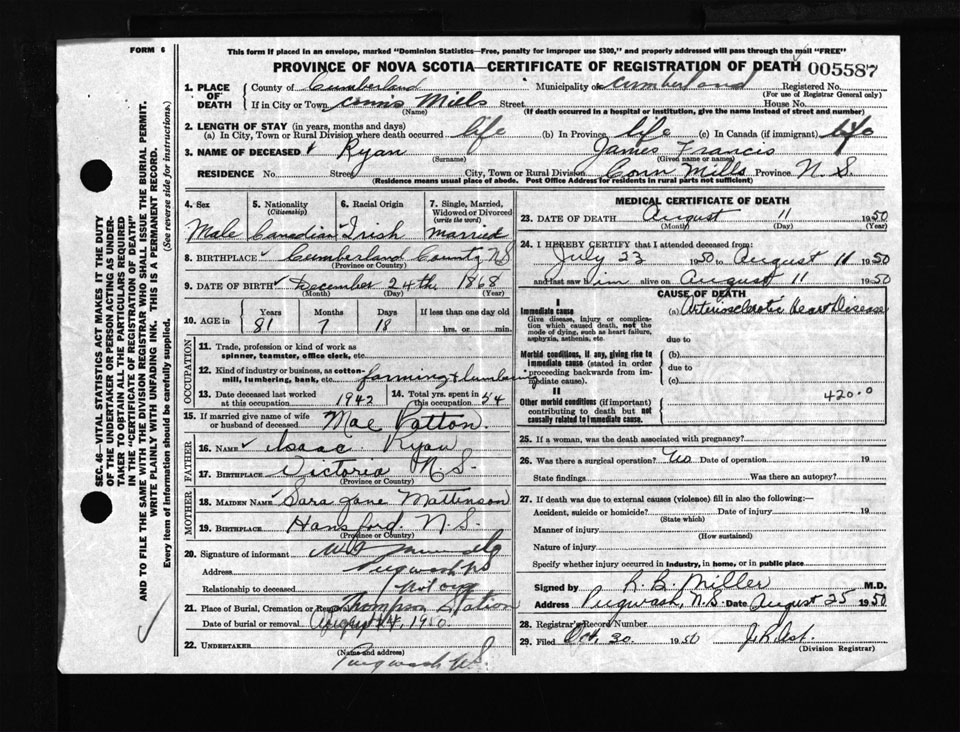 FORM 6
This form if placed in an envelope, marked "Dominion Statistics—Free, penalty for improper use $300," and properly addressed will pass through the mail "FREE"
PROVINCE OF NOVA SCOTIA—CERTIFICATE OF REGISTRATION OF DEATH 005587
SEC. 46—VITAL STATISTICS ACT MAKES IT THE DUTY
OF THE UNDERTAKER OR PERSON ACTING AS UNDER-
TAKER TO OBTAIN ALL THE PARTICULARS REQUIRED
IN THE "CERTIFICATE OF REGISTRATION OF DEATH"
AND TO FILE THE SAME WITH THE DIVISION REGISTRAR WHO SHALL ISSUE THE BURIAL PERMIT.
WRITE PLAINLY WITH UNFADING INK. THIS IS A PERMANENT RECORD.
Every item of information should be carefully supplied. (See reverse side for instructions.)
1. PLACE OF DEATH
County of Cumberland Municipality of Cumberland Registered No.
(For use of Registrar General only)
If in City or Town Conns Mills Street House No.
(Name) (If death occurred in a hospital or institution, give the name instead of street and number)
2. LENGTH OF STAY (in years, months and days)
(a) In City, Town or Rural Division where death occurred life (b) In Province life (c) In Canada (if immigrant) life
3. NAME OF DECEASED Ryan James Francis
(Surname) (Given name or names)
RESIDENCE No. Street City, Town or Rural Division Conn Mills Province N.S.
(Residence means usual place of abode. Post Office Address for residents in rural parts not sufficient)
4. Sex 5. Nationality (Citizenship) 6. Racial Origin 7. Single, Married, Widowed or Divorced (write the word)
Male Canadian Irish married
8. BIRTHPLACE Cumberland County N.S.
(Province or Country)
9. DATE OF BIRTH December 24th 1868
(Month) (Day) (Year)
10. AGE in Years Months Days If less than one day old
81 7 18 hrs. or min.
OCCUPATION
11. Trade, profession or kind of work as
spinner, teamster, office clerk, etc.
12. Kind of industry or business, as cotton-
mill, lumbering, bank, etc. farming & lumbering
13. Date deceased last worked at this occupation 1942 14. Total yrs. spent in this occupation 54
15. If married give name of wife
or husband of deceased Mae Patton
FATHER
16. NAME Isaac Ryan
17. BIRTHPLACE Victoria N.S.
(Province or Country)
MOTHER
18. MAIDEN NAME Sara Jane Mattinson
19. BIRTHPLACE Hansford N.S.
(Province or Country)
20. Signature of informant
Address Pugwash NS
Relationship to deceased
21. Place of Burial, Cremation or Removal Thompson Station
Date of burial or removal
22. UNDERTAKER
(Name and address)
Pugwash N.S.
MEDICAL CERTIFICATE OF DEATH
23. DATE OF DEATH August 11 1950
(Month) (Day) (Year)
24. I HEREBY CERTIFY that I attended deceased from:
July 23 1950 to August 11 1950
and last saw him alive on August 11 1950
CAUSE OF DEATH
I
Immediate cause
Give disease, injury or complica-
tion which caused death, not the
mode of dying, such as heart failure,
asphyxia, asthenia, etc.
(a) Arteriosclerotic Heart Disease
due to
Morbid conditions, if any, giving rise to
immediate cause (stated in order
proceeding backwards from im-
mediate cause)
(b)
due to
(c)
II
Other morbid conditions (if important)
contributing to death but not
causally related to immediate cause.
420.0
25. If a woman, was the death associated with pregnancy?
26. Was there a surgical operation? No Date of operation 19
State findings Was there an autopsy?
27. If death was due to external causes (violence) fill in also the following:—
Accident, suicide or homicide? Date of injury 19
(State which)
Manner of injury
(How sustained)
Nature of injury
Specify whether injury occurred in industry, in home, or in public place
Signed by R. B. Miller M.D.
Address Pugwash, N.S. Date August 25 1950
28. Registrar's Record Number
29. Filed Oct. 30 1950
(Division Registrar)